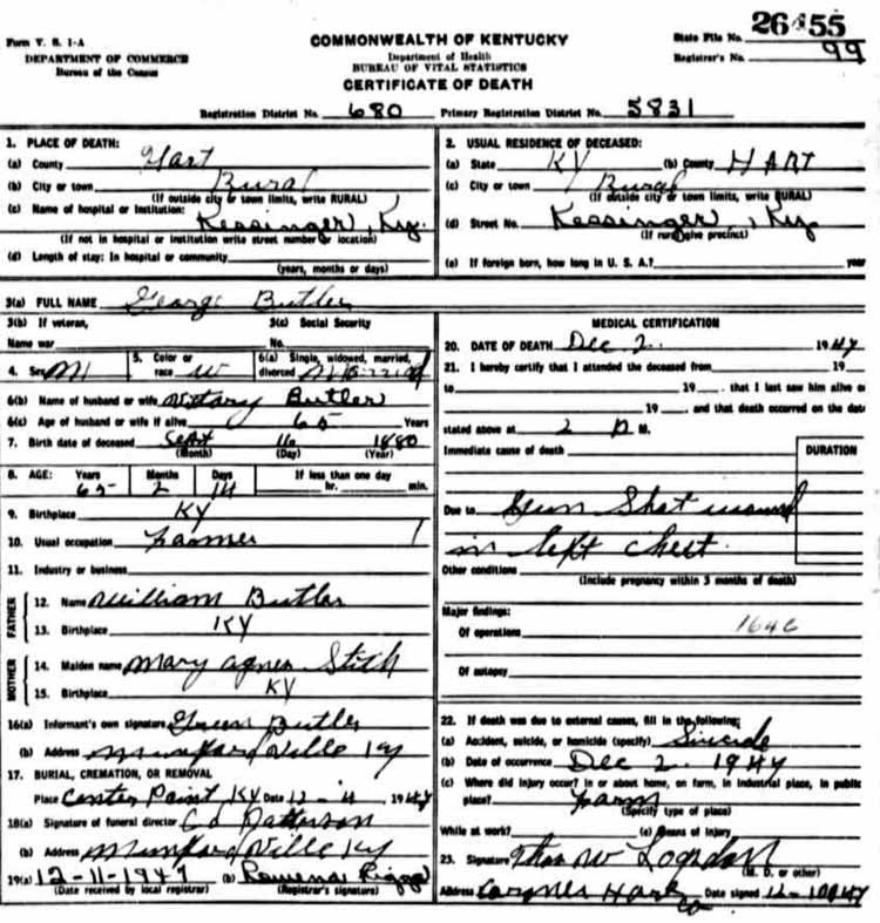 26455
Form V. S. 1-A
COMMONWEALTH OF KENTUCKY
State File No.
DEPARTMENT OF COMMERCE
Department of Health
Registrar's No. 99
Bureau of the Census
BUREAU OF VITAL STATISTICS
CERTIFICATE OF DEATH
Registration District No. 680 Primary Registration District No. 5831
1. PLACE OF DEATH:
(a) County Hart
(b) City or town Rural
(If outside city or town limits, write RURAL)
(c) Name of hospital or institution:
Kessinger, Ky.
(If not in hospital or institution write street number or location)
(d) Length of stay: In hospital or community
(years, months or days)
2. USUAL RESIDENCE OF DECEASED:
(a) State KY (b) County HART
(c) City or town Rural
(If outside city or town limits, write RURAL)
(d) Street No. Kessinger, Ky
(If rural give precinct)
(e) If foreign born, how long in U. S. A.? year
3(a) FULL NAME George Butler
3(b) If veteran, 3(c) Social Security
Name war No.
4. Sex M 5. Color or race W 6(a) Single, widowed, married, divorced Married
6(b) Name of husband or wife Butler
6(c) Age of husband or wife if alive 65 Years
7. Birth date of deceased Sept 16 1880
(Month) (Day) (Year)
8. AGE: Years Months Days If less than one day
65 2 14 hr. min.
9. Birthplace KY
10. Usual occupation Farmer
11. Industry or business
FATHER
12. Name William Butler
13. Birthplace KY
MOTHER
14. Maiden name Mary Agnes Stith
15. Birthplace KY
16(a) Informant's own signature Green Butler
(b) Address Munfordville Ky
17. BURIAL, CREMATION, OR REMOVAL
Place Center Point, KY Date 12-4, 1947
18(a) Signature of funeral director Patterson
(b) Address Munfordville Ky
19(a) 12-11-1947 (b) Rowena
(Date received by local registrar) (Registrar's signature)
MEDICAL CERTIFICATION
20. DATE OF DEATH Dec 2. 1947
21. I hereby certify that I attended the deceased from 19
to 19 , that I last saw him alive o
19 , and that death occurred on the date
stated above at 2 P M.
Immediate cause of death
DURATION
Due to Gun Shot wound
in left chest.
Other conditions
(Include pregnancy within 3 months of death)
Major findings:
Of operations 164c
Of autopsy
22. If death was due to external causes, fill in the following:
(a) Accident, suicide, or homicide (specify) Suicide
(b) Date of occurrence Dec 2. 1947
(c) Where did injury occur? In or about home, on farm, in industrial place, in public
place? Farm
(Specify type of place)
While at work? (e) Means of injury
23. Signature Thos W Logsdon
(M. D. or other)
Address Coroner Hart Co Date signed 12-10-47